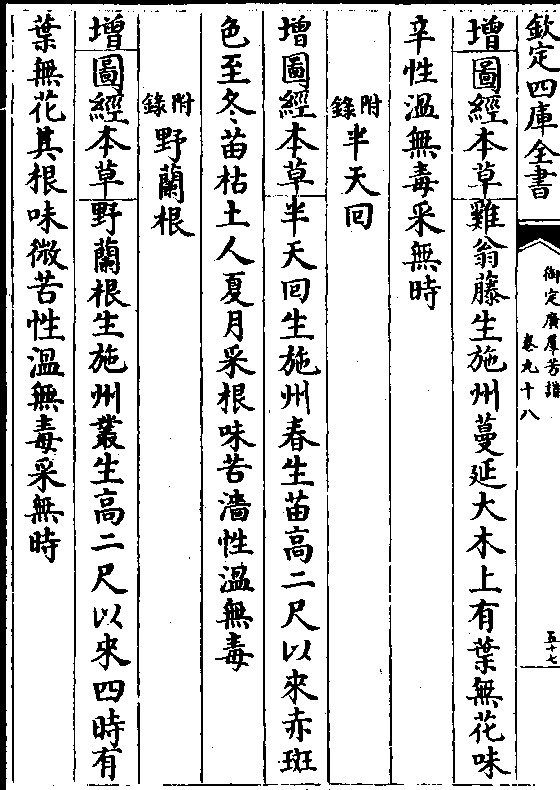 欽定四庫全書
御定廣羣芳譜
卷九十八
五十七
增圖經本草雞翁藤生施州蔓延大木上有葉無花味
辛性溫無毒采無時
附錄半天回
增圖經本草半天回生施州春生苗高二尺以來赤斑
色至冬苗枯土人夏月采根味苦濇性溫無毒
附錄野蘭根
增圖經本草野蘭根生施州叢生高二尺以來四時有
葉無花其根味微苦性溫無毒采無時